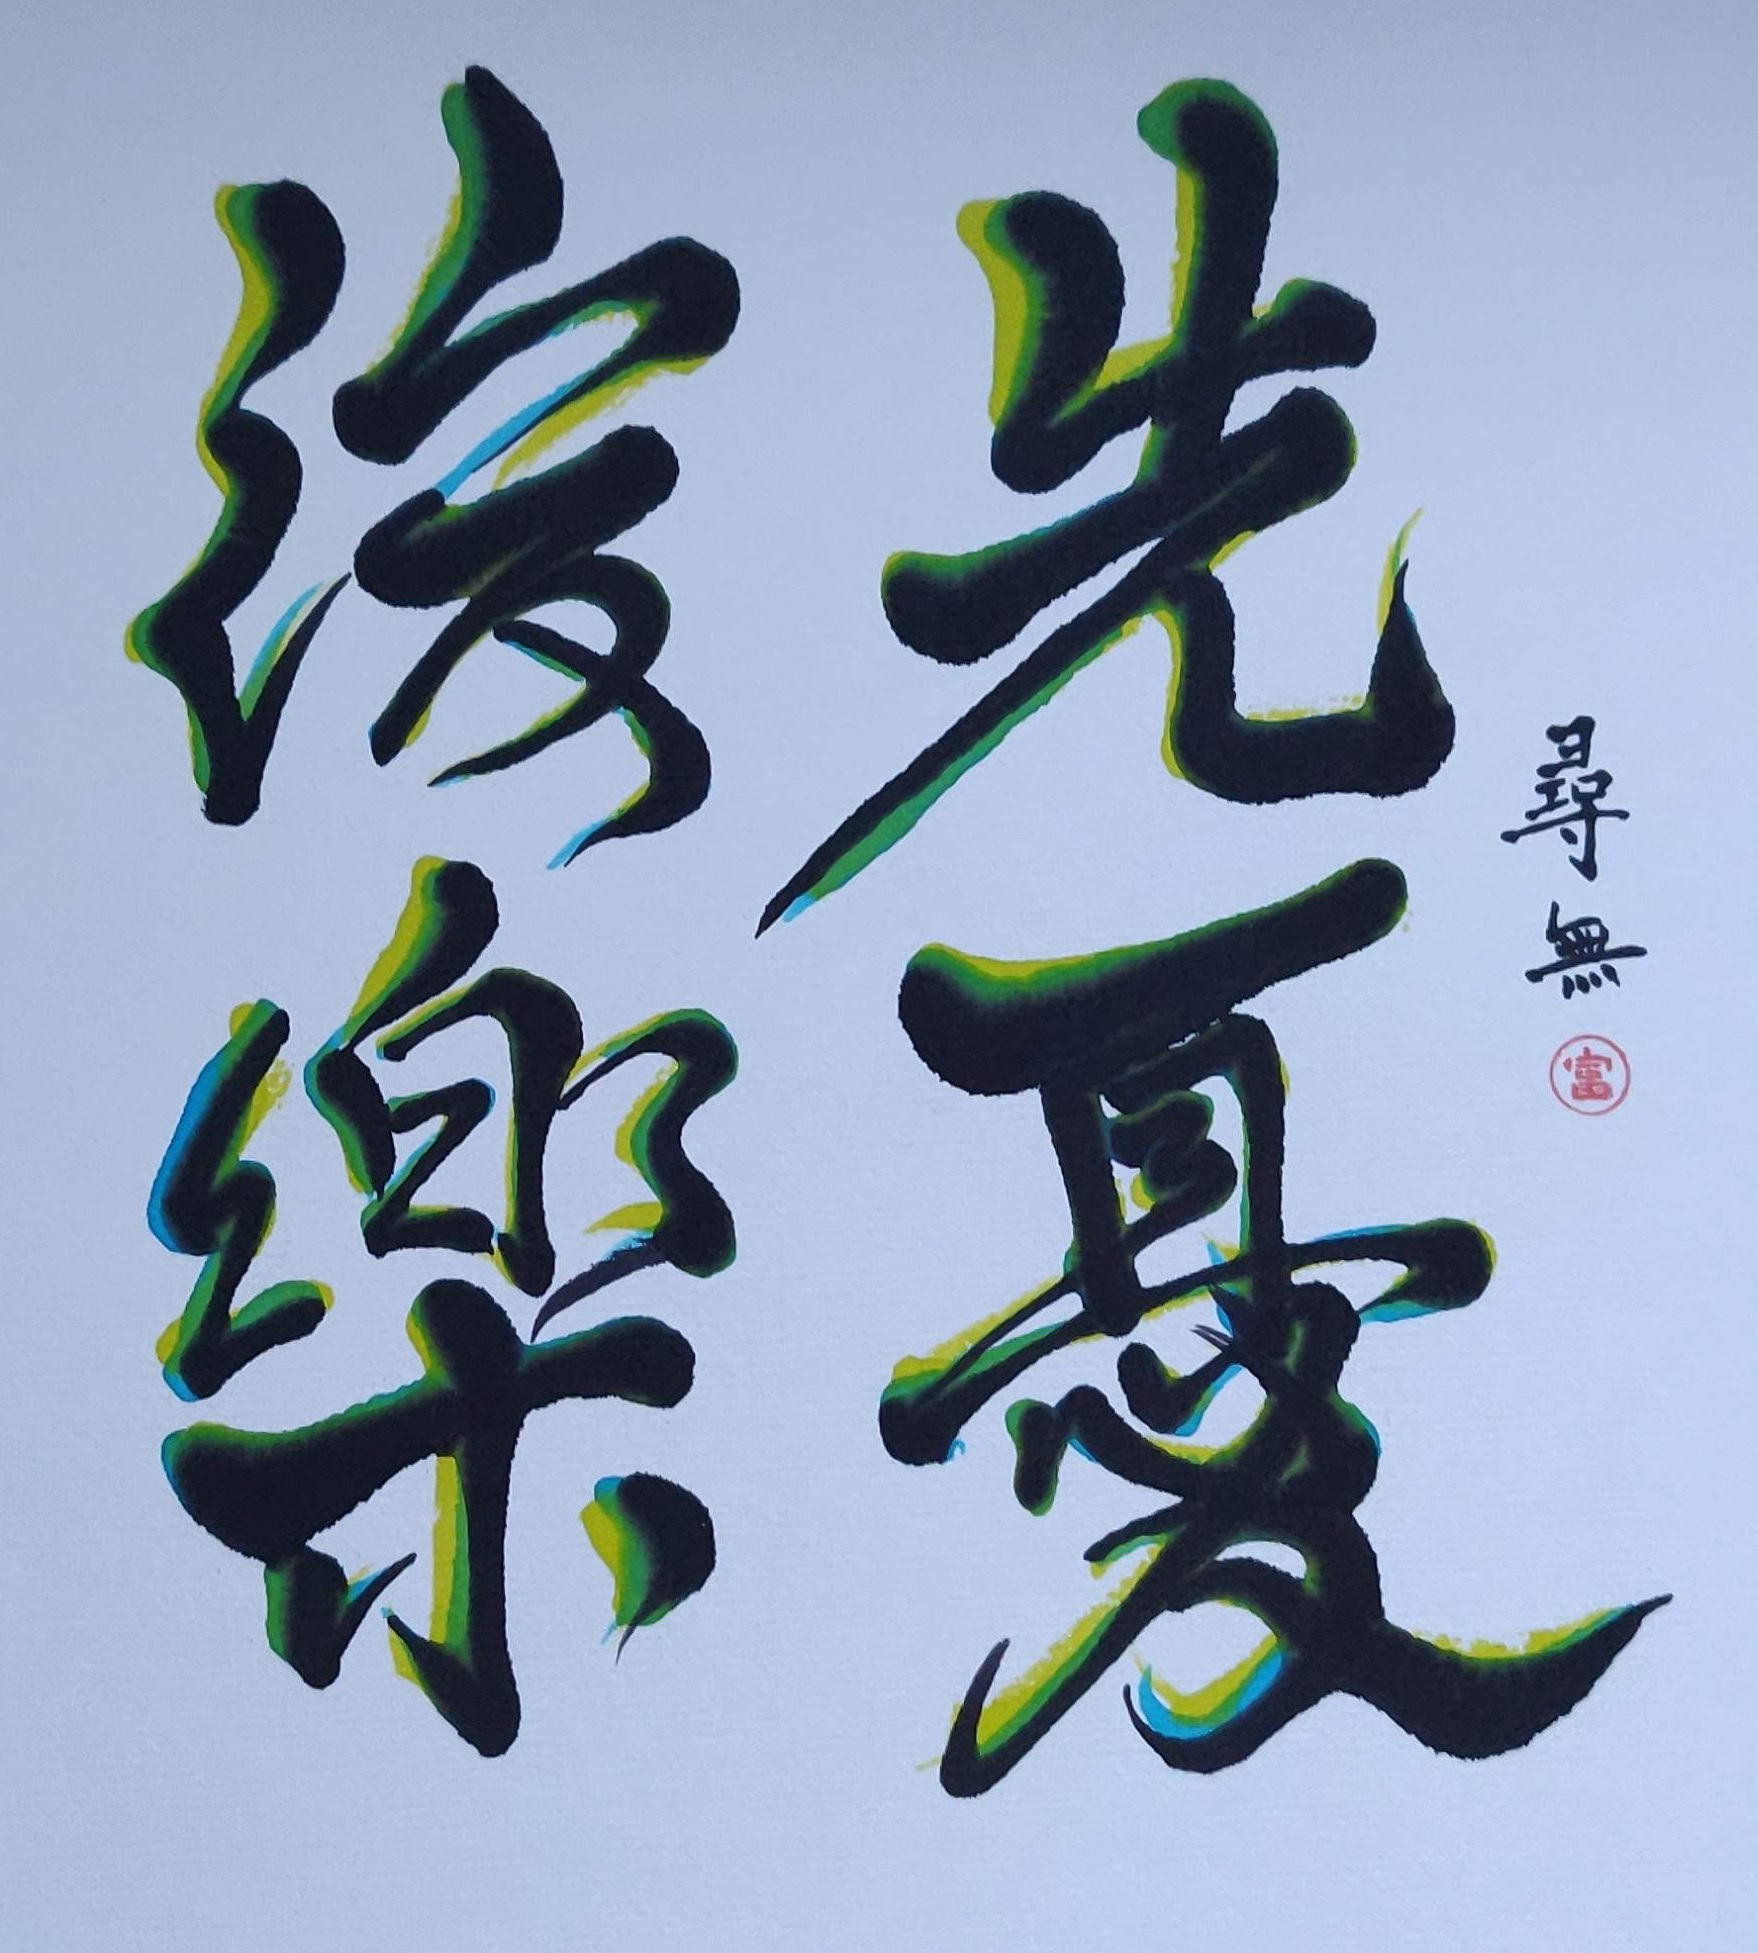 先憂
後樂
尋無
富